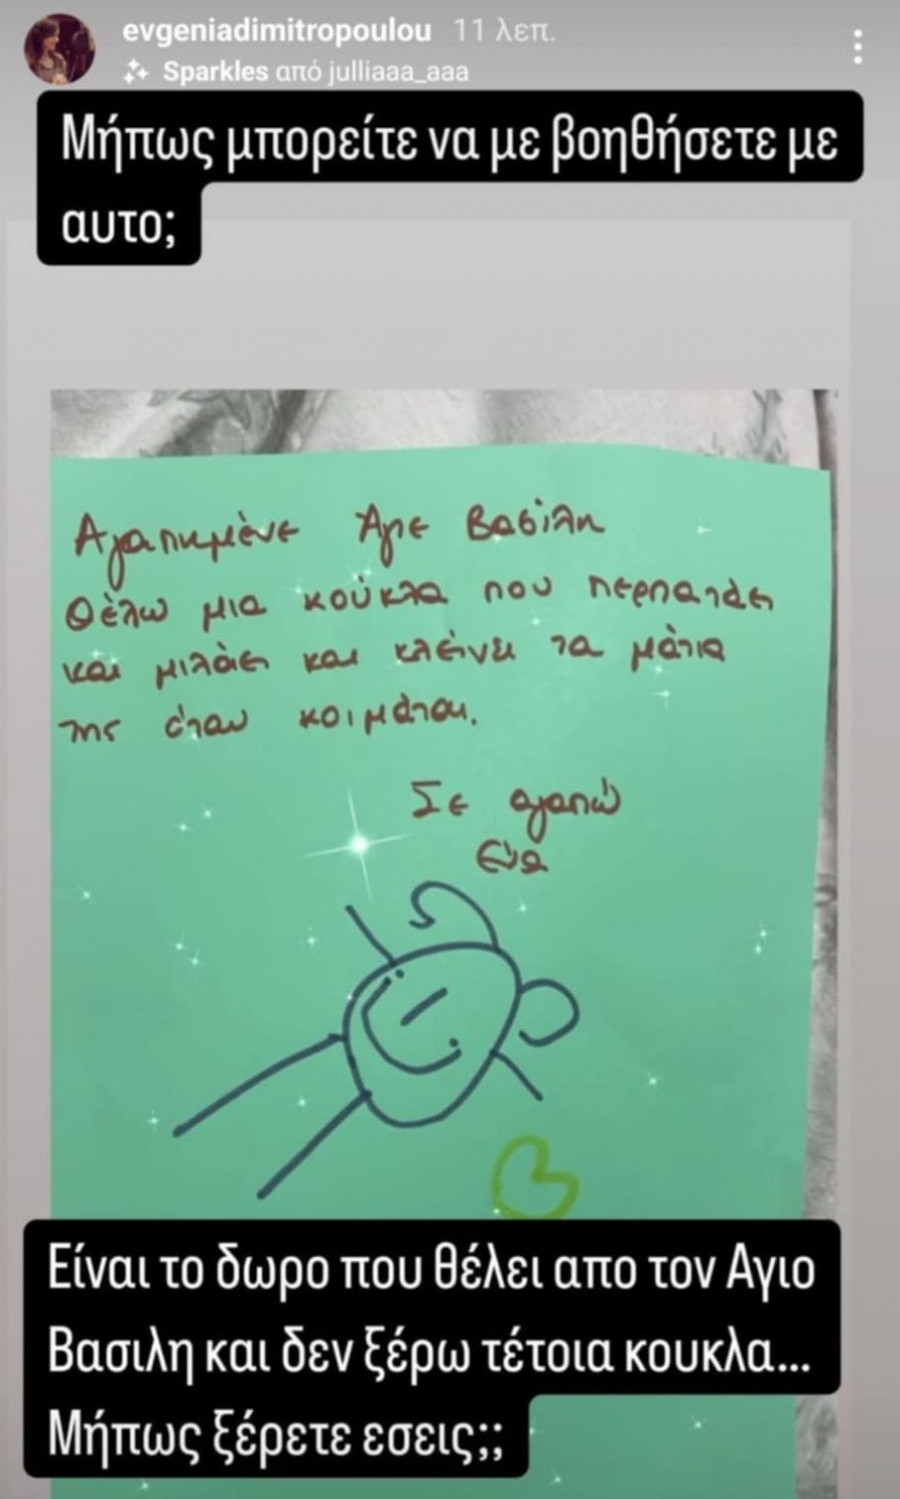 evgeniadimitropoulou 11 λεπ.
Sparkles από julliaaa_aaa
Μήπως μπορείτε να με βοηθήσετε με
αυτο;
Αγαπημένε Άγιε Βασίλη
Θέλω μια κούκλα που περπατάει
και μιλάει και κλείνει τα μάτια
της όταν κοιμάται.
Σε αγαπώ
Εύα
Είναι το δωρο που θέλει απο τον Αγιο
Βασιλη και δεν ξέρω τέτοια κουκλα...
Μήπως ξέρετε εσεις;;